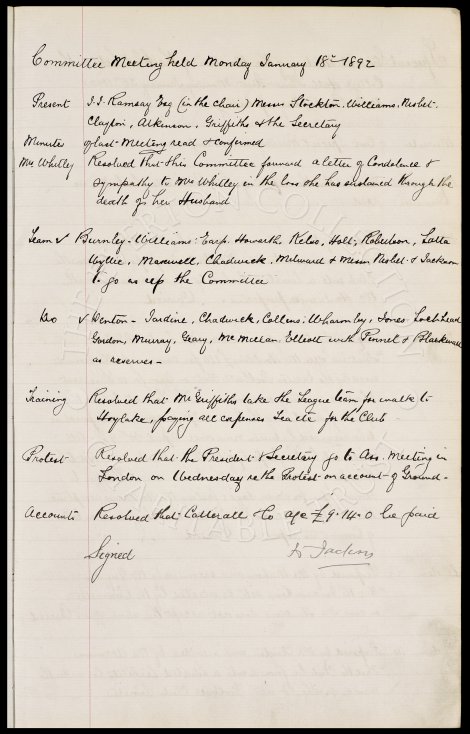 Committee Meeting held Monday January 18th 1892
Present J.J. Ramsay Esq (in the chair) Messrs Stockton, Williams, Nisbet
Clayton, Atkinson, Griffiths & the Secretary
Minutes of last Meeting read & confirmed
Mrs Whitley Resolved that this Committee forward a letter of Condolence &
sympathy to Mrs Whitley in the loss she has sustained through the
death of her Husband
Team v Burnley - Williams: Earp. Howarth, Kelso, Holt, Robertson, Latta
Wyllie, Maxwell, Chadwick, Milward & Messrs Nisbet & Jackson
to go as rep the Committee
Do v Denton - Jardine, Chadwick, Collins, Wharmby, Jones Lochhead
Gordon, Murray, Geary, McMillan, Elliott with Pinnel & 
as reserves -
Training Resolved that Mr Griffiths take the League team for walk to
Hoylake, paying all expenses Tea etc for the Club
Protest Resolved that the President & Secretary go to Ass. Meeting in
London on Wednesday re the Protest on account of Ground -
Accounts Resolved that Catterall & Co a/c £9.14.0 be paid
Signed